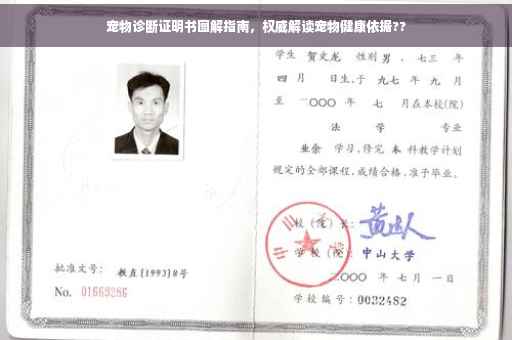 宠物诊断证明书图解指南，权威解读宠物健康依据??
学生 贺文龙 性别 男 、七三 年
四 月 日生，于 九七 年 九 月
至 二〇〇〇 年 七 月在本校(院)
法 学 专业
业余 学习，修完 本 科教学计划
规定的全部课程，成绩合格，准予毕业。
校(院)长：
学 校(院)： 中山大学
二〇〇〇 年 七 月 一 日
学校编号：0032482
批准文号： 教直[1993]8号
No. 01669286